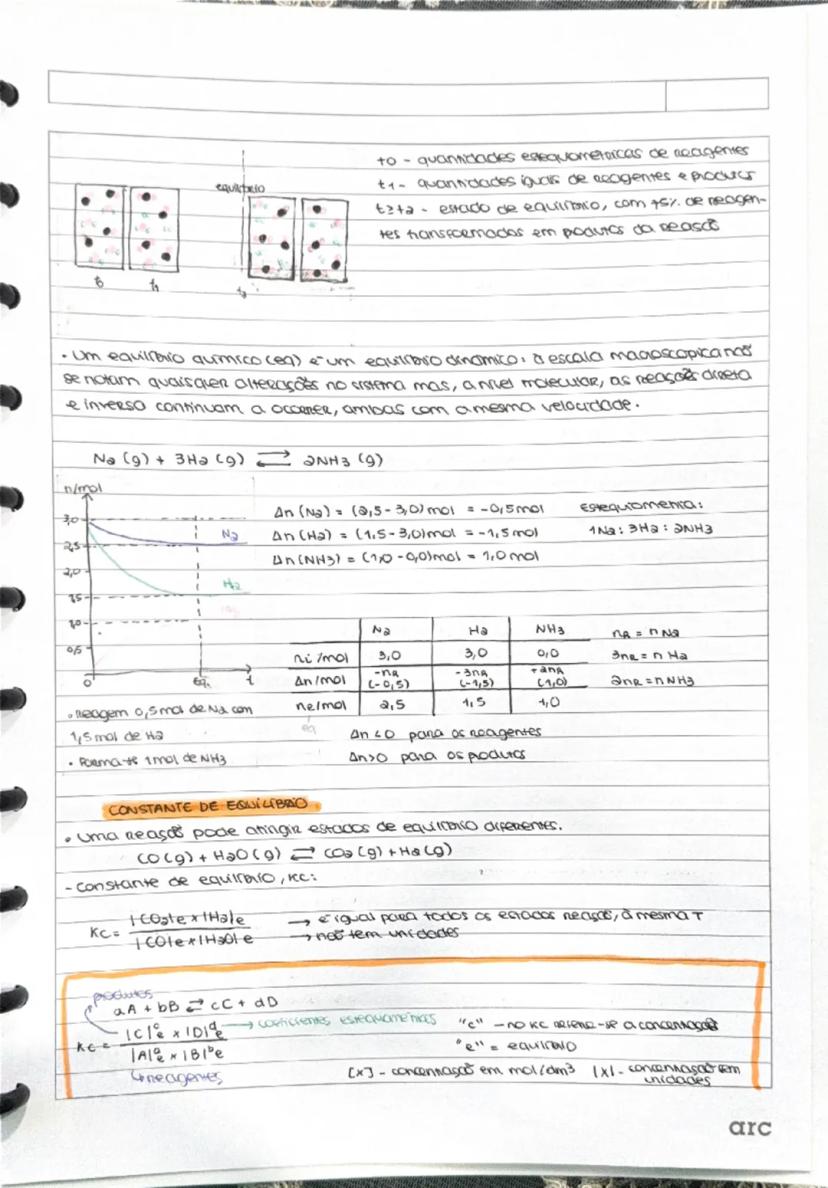 equilíbrio
t0 t1 t2
t0 - quantidades estequiométricas de reagentes
t1 - quantidades iguais de reagentes e produtos
t≥t2 - estado de equilíbrio, com 75% de reagen-
tes transformados em produtos da reação
• Um equilíbrio químico (eq) é um equilíbrio dinâmico: à escala macroscopica não
se notam quaisquer alterações no sistema mas, a nível molecular, as reações direta
e inversa continuam a ocorrer, ambas com a mesma velocidade.
N2 (g) + 3H2 (g) ⇄ 2NH3 (g)
n/mol
3,0
2,5
2,0
1,5
1,0
0,5
0
N2
H2
NH3
eq. t
Δn (N2) = (2,5-3,0) mol = -0,5mol
Δn (H2) = (1,5-3,0)mol = -1,5mol
Δn (NH3) = (1,0-0,0)mol = 1,0mol
Estequiometria:
1N2 : 3H2 : 2NH3
N2 H2 NH3
ni/mol 3,0 3,0 0,0
Δn/mol -nR (-0,5) -3nR (-1,5) +2nR (1,0)
ne/mol 2,5 1,5 1,0
eq
nR = nN2
3nR = nH2
2nR = nNH3
• Reagem 0,5mol de N2 com
1,5mol de H2
• Formam-se 1mol de NH3
Δn<0 para os reagentes
Δn>0 para os produtos
CONSTANTE DE EQUILÍBRIO
• Uma reação pode atingir estados de equilíbrio diferentes.
CO(g) + H2O(g) ⇄ CO2(g) + H2(g)
- constante de equilíbrio, Kc:
Kc = |CO2|e x |H2|e / |CO|e x |H2O|e
→ é igual para todos os estados reação, à mesma T
→ não tem unidades
produtos
aA + bB ⇄ cC + dD
Kc = |C|ᶜe x |D|ᵈe / |A|ᵃe x |B|ᵇe
→ coeficientes estequiométricos
↳ reagentes
"c" - no Kc refere-se a concentração
"e" = equilíbrio
[x] - concentração em mol/dm³ |x| - concentração sem
unidades
arc